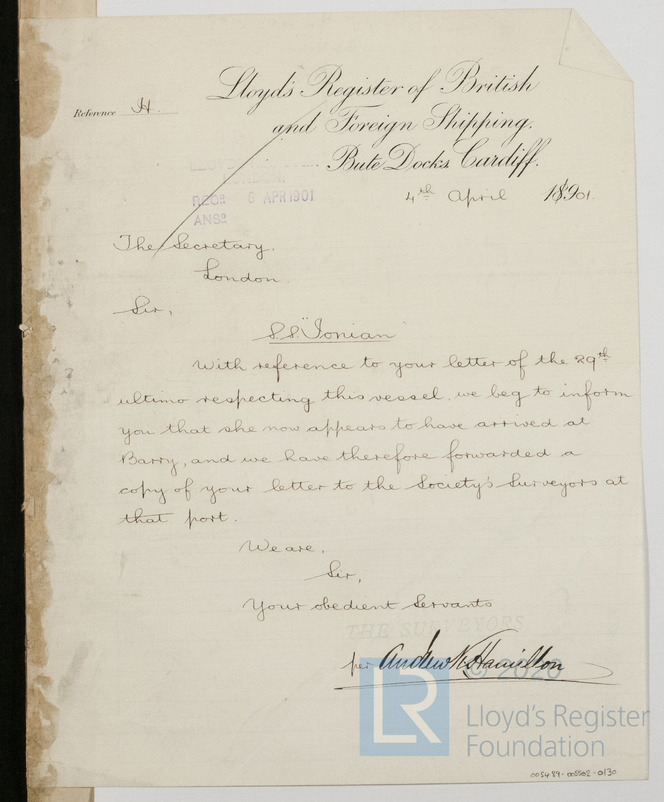 Lloyd's Register of British
and Foreign Shipping.
Reference H.
Bute Docks, Cardiff.
4th April 1901.
RECD 6 APR 1901
ANSD
The Secretary,
London
Sir,
S.S. "Ionian"
With reference to your letter of the 29th
ultimo respecting this vessel, we beg to inform
you that she now appears to have arrived at
Barry, and we have therefore forwarded a
copy of your letter to the Society's Surveyors at
that port.
We are,
Sir,
Your obedient Servants
THE SURVEYORS
per Andrew K. Hamilton
© 2020
LR
Lloyd's Register
Foundation
005489-005502-0130